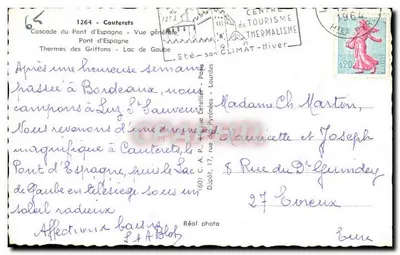 1264 - Cauterets
Cascade du Pont d'Espagne - Vue générale
Pont d'Espagne
Thermes des Griffons - Lac de Gaube
CENTRE
de TOURISME
THERMALISME
Eté - CLIMAT - Hiver
1964
0,20
Après une heureuse semaine
passée à Bordeaux, nous
campons à Luz St Sauveur
Nous revenons d'une
magnifique à Cauterets, le
Pont d'Espagne, puis le Lac
de Gaube en télésiège sous un
soleil radieux
Affectueux baisers
Réal photo
Madame Ch Marton,
et Joseph
8 Rue du Dr
27 Evreux
Eure